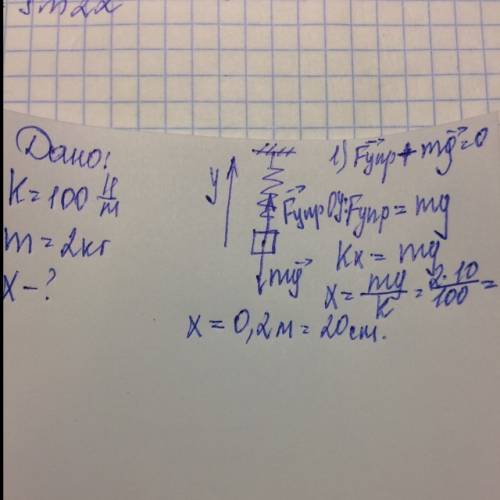 Дано:
K = 100 Н/m
m = 2кг
x - ?
y
F⃗упр
mg⃗
1) F⃗упр + mg⃗ = 0
Oy: Fупр = mg
Kx = mg
x = mg/K = 2·10/100 =
x = 0,2м = 20cm.